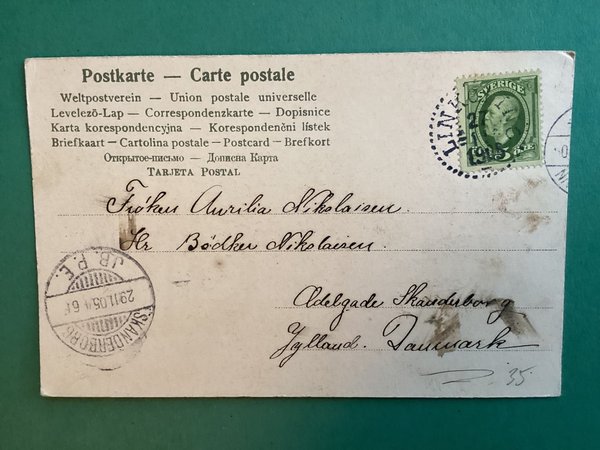 Postkarte — Carte postale
Weltpostverein — Union postale universelle
Levelező-Lap — Correspondenzkarte — Dopisnice
Karta korespondencyjna — Korespondenční lístek
Briefkaart — Cartolina postale — Postcard — Brefkort
Открытое-письмо — Дописна Карта
TARJETA POSTAL
SVERIGE
5
1905
Frøken Aurilia Nikolaisen.
Hr Bødker Nikolaisen.
Adelgade Skanderborg
Jylland. Danmark
35
J.B.P.E.
29.11.05
SKANDERBORG